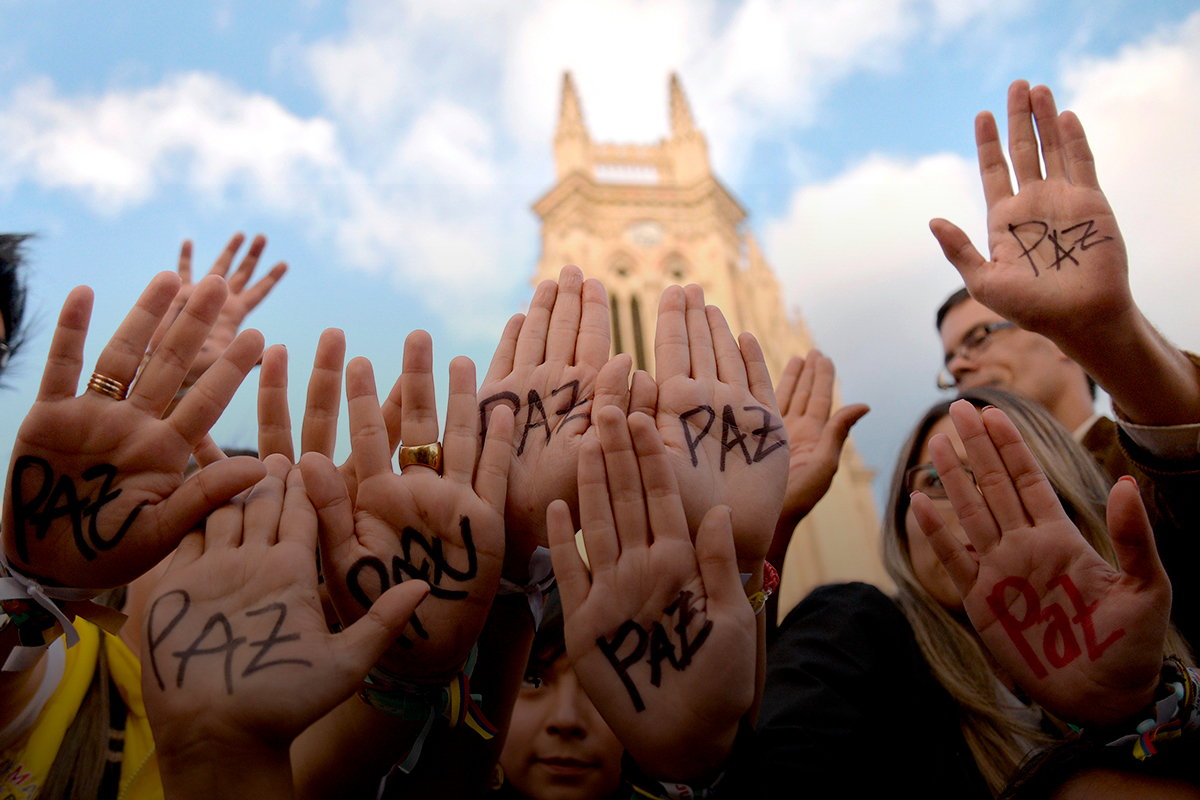 PAZ
PAZ
PAZ
PAZ
PAZ
PAZ
PAZ
Paz